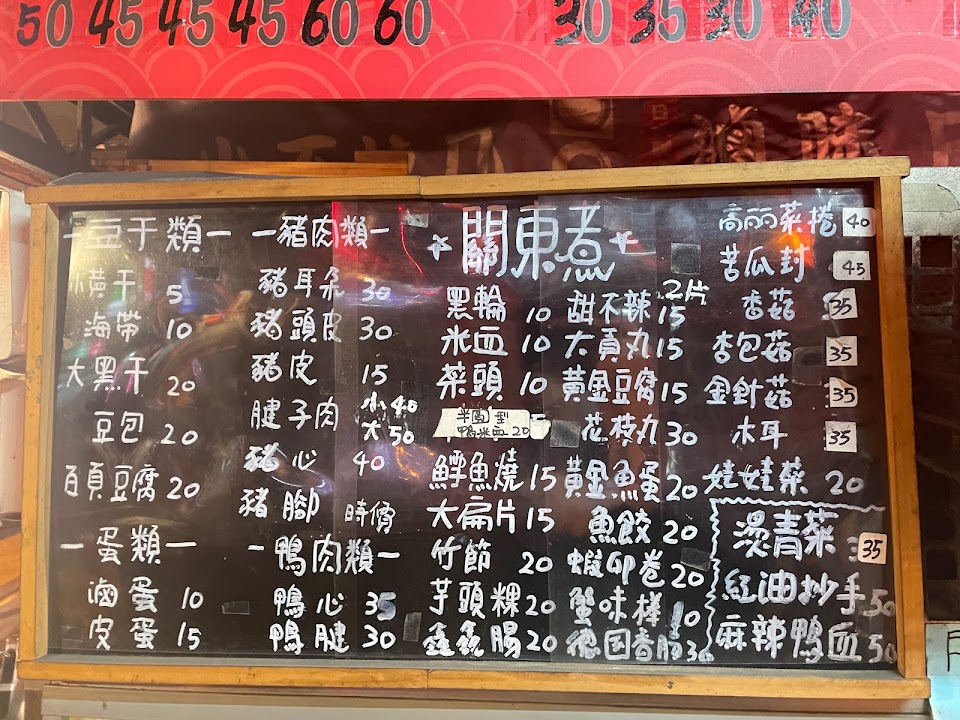 50 45 45 45 60 60 30 35 30 40
一豆干類一
橫干 5
海帶 10
大黑干 20
豆包 20
百頁豆腐 20
一蛋類一
滷蛋 10
皮蛋 15
一豬肉類一
豬耳朵 30
豬頭皮 30
豬皮 15
腱子肉 小40
大50
豬心 40
豬腳 時價
一鴨肉類一
鴨心 35
鴨腱 30
☆關東煮☆
黑輪 10
米血 10
菜頭 10
半圓型
鴨米血 20
鱈魚燒 15
大扁片 15
竹節 20
芋頭粿 20
鑫鑫腸 20
甜不辣 2片 15
大貢丸 15
黃金豆腐 15
花枝丸 30
黃金魚蛋 20
魚餃 20
蝦卵卷 20
蟹味棒 10
德国香腸 30
高丽菜捲 40
苦瓜封 45
香菇 35
杏包菇 35
金針菇 35
木耳 35
娃娃菜 20
燙青菜 35
紅油抄手 50
麻辣鴨血 50